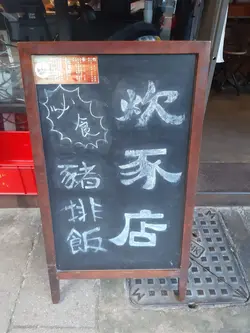 炊豕店
炒食
豬排飯